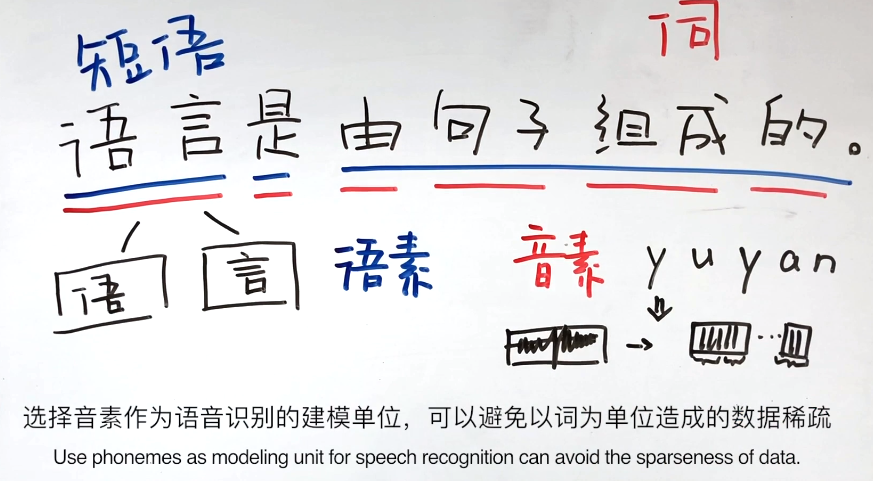 短语 词
语言是由句子组成的。
语 言 语素 音素 yuyan
选择音素作为语音识别的建模单位，可以避免以词为单位造成的数据稀疏
Use phonemes as modeling unit for speech recognition can avoid the sparseness of data.